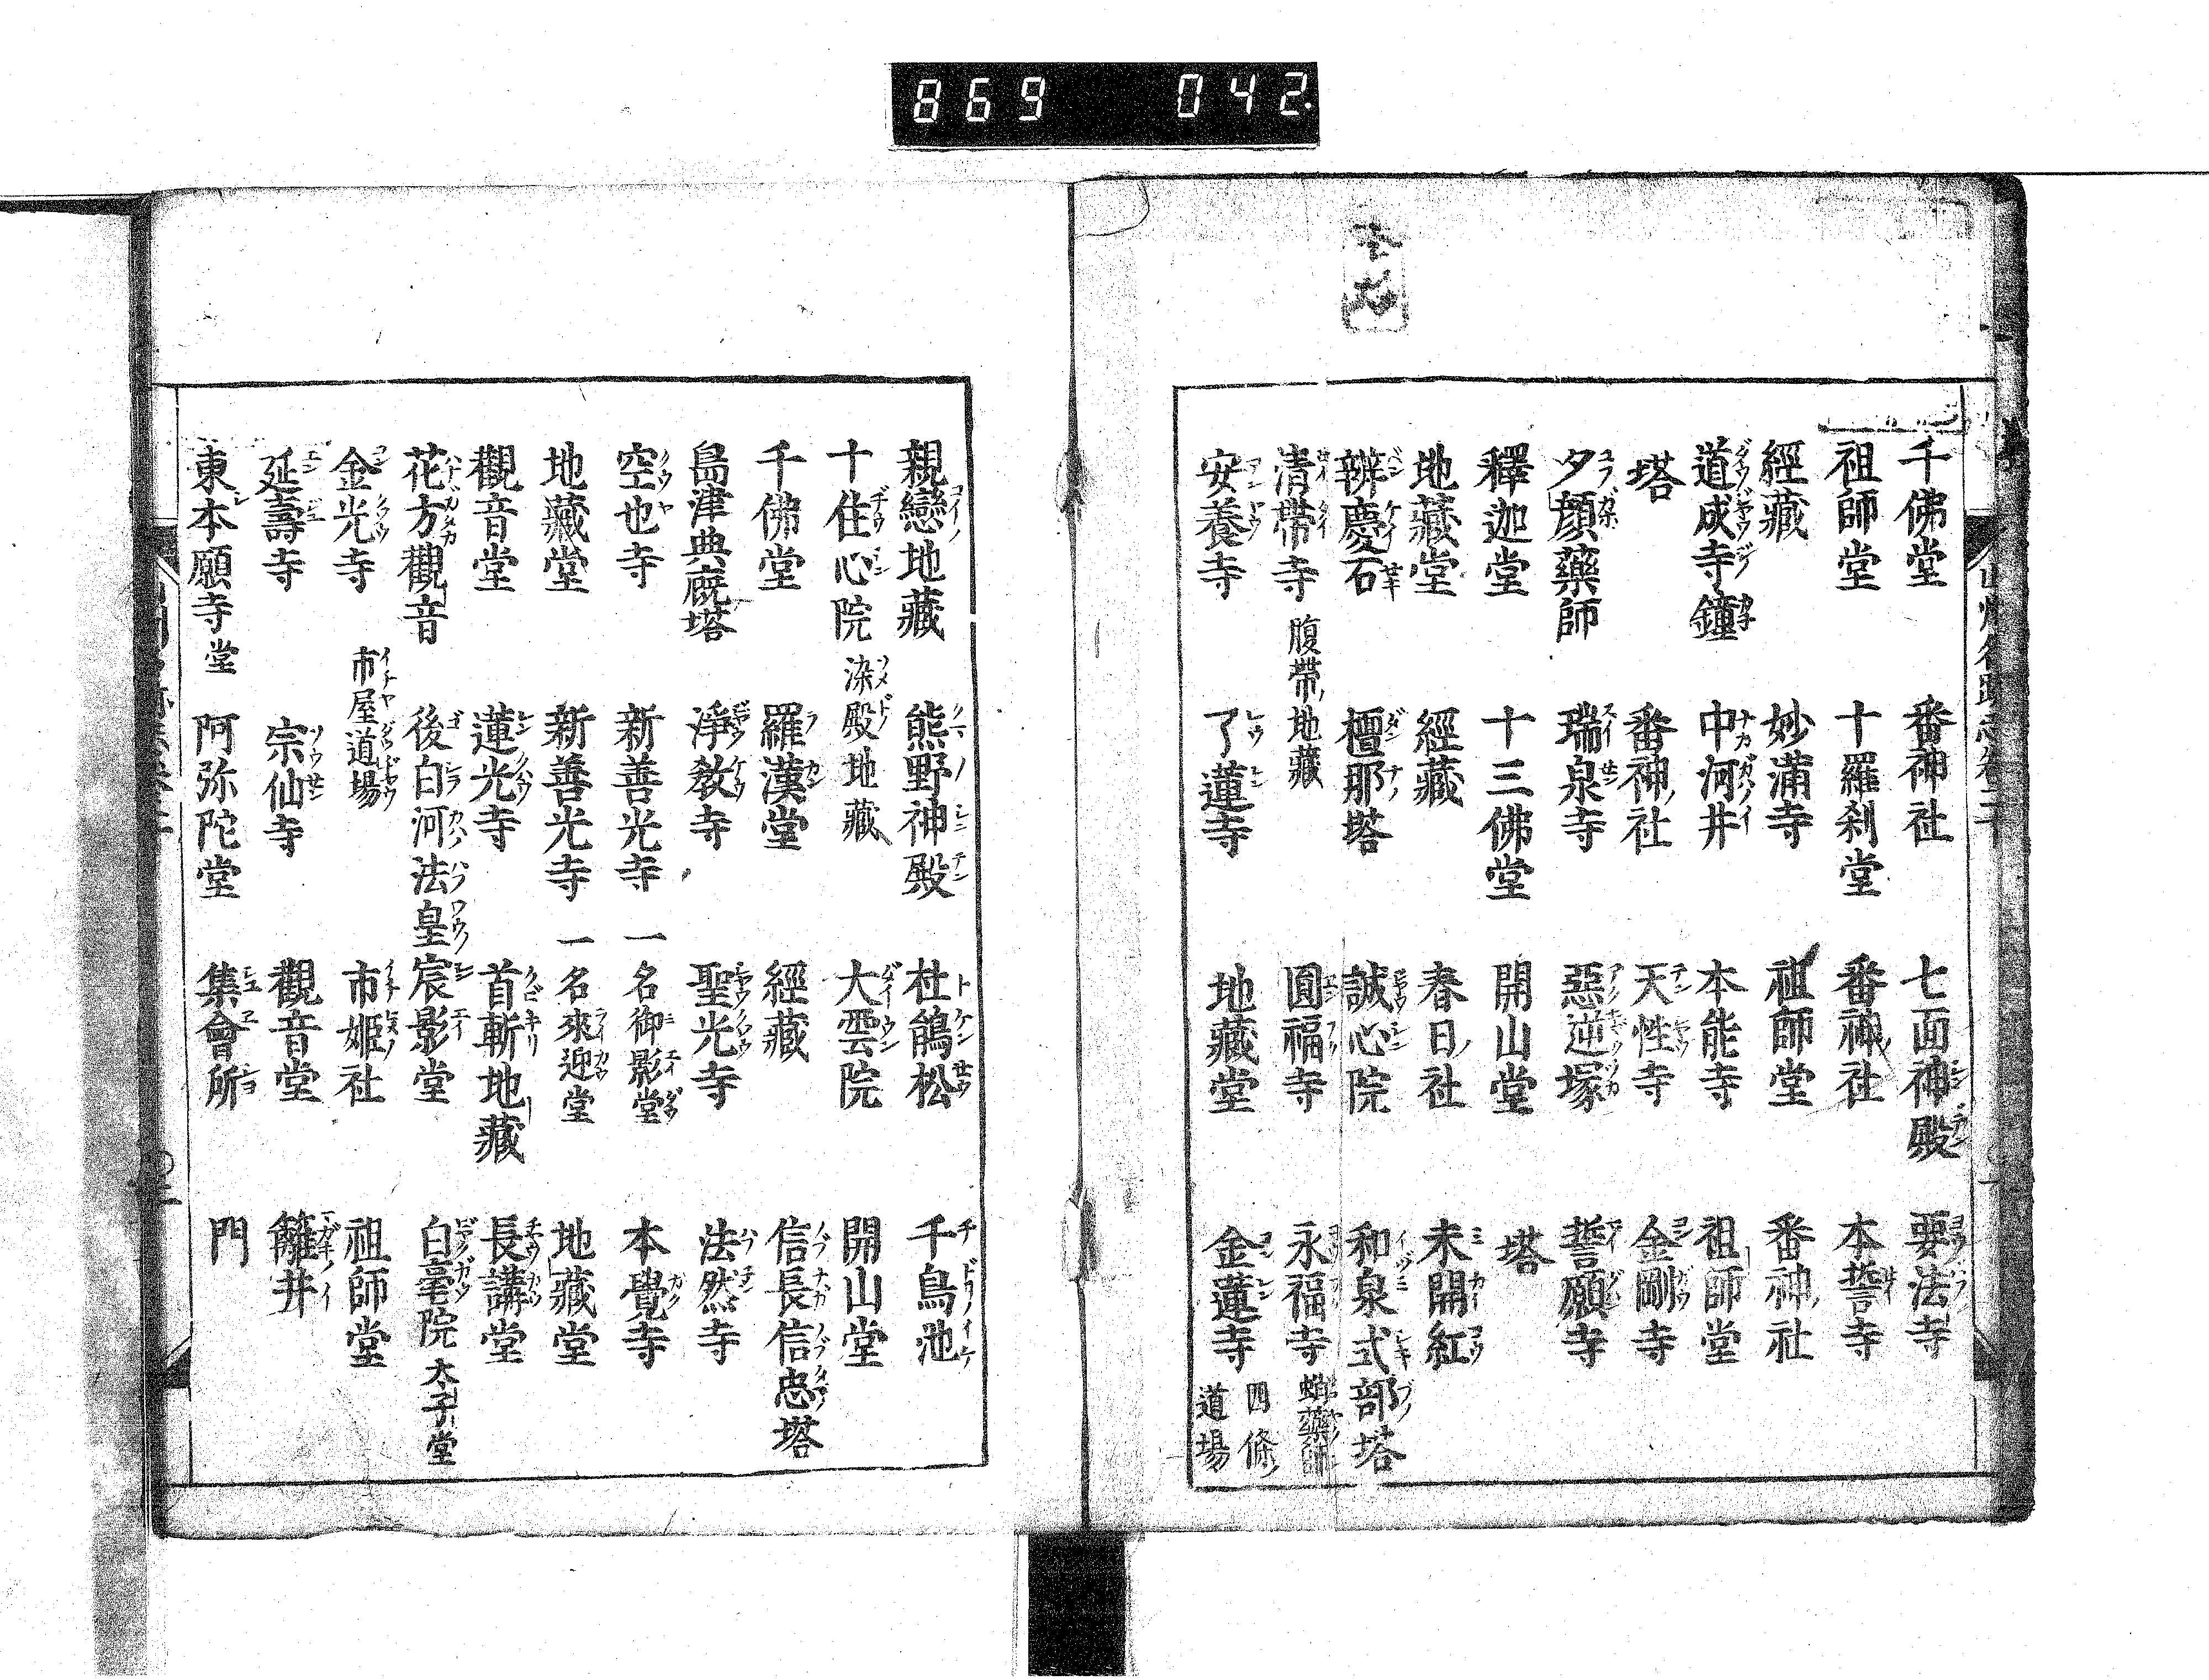 869 042.
千佛堂 番神社 七面神殿 要法寺
祖師堂 十羅刹堂 番神社 本誓寺
經藏 妙滿寺 祖師堂 番神社
道成寺鐘 中河井 本能寺 祖師堂
塔 番神社 天性寺 金剛寺
夕顏藥師 瑞泉寺 惡逆塚 誓願寺
釋迦堂 十三佛堂 開山堂 塔
地藏堂 經藏 春日社 未開紅
辨慶石 檀那塔 誠心院 和泉式部塔
清帶寺 腹帶地藏 圓福寺 永福寺 蛸藥師
安養寺 了蓮寺 地藏堂 金蓮寺 四條道場
親戀地藏 熊野神殿 杜鵑松 千鳥池
十住心院 染殿地藏 大雲院 開山堂
千佛堂 羅漢堂 經藏 信長信忠塔
島津典厩塔 淨教寺 聖光寺 法然寺
空也寺 新善光寺 一名御影堂 本覺寺
地藏堂 新善光寺 一名來迎堂 地藏堂
觀音堂 蓮光寺 首斬地藏 長講堂
花方觀音 後白河法皇宸影堂 白毫院 太子堂
金光寺 市屋道場 市姬社 祖師堂
延壽寺 宗仙寺 觀音堂 籬井
東本願寺堂 阿弥陀堂 集會所 門